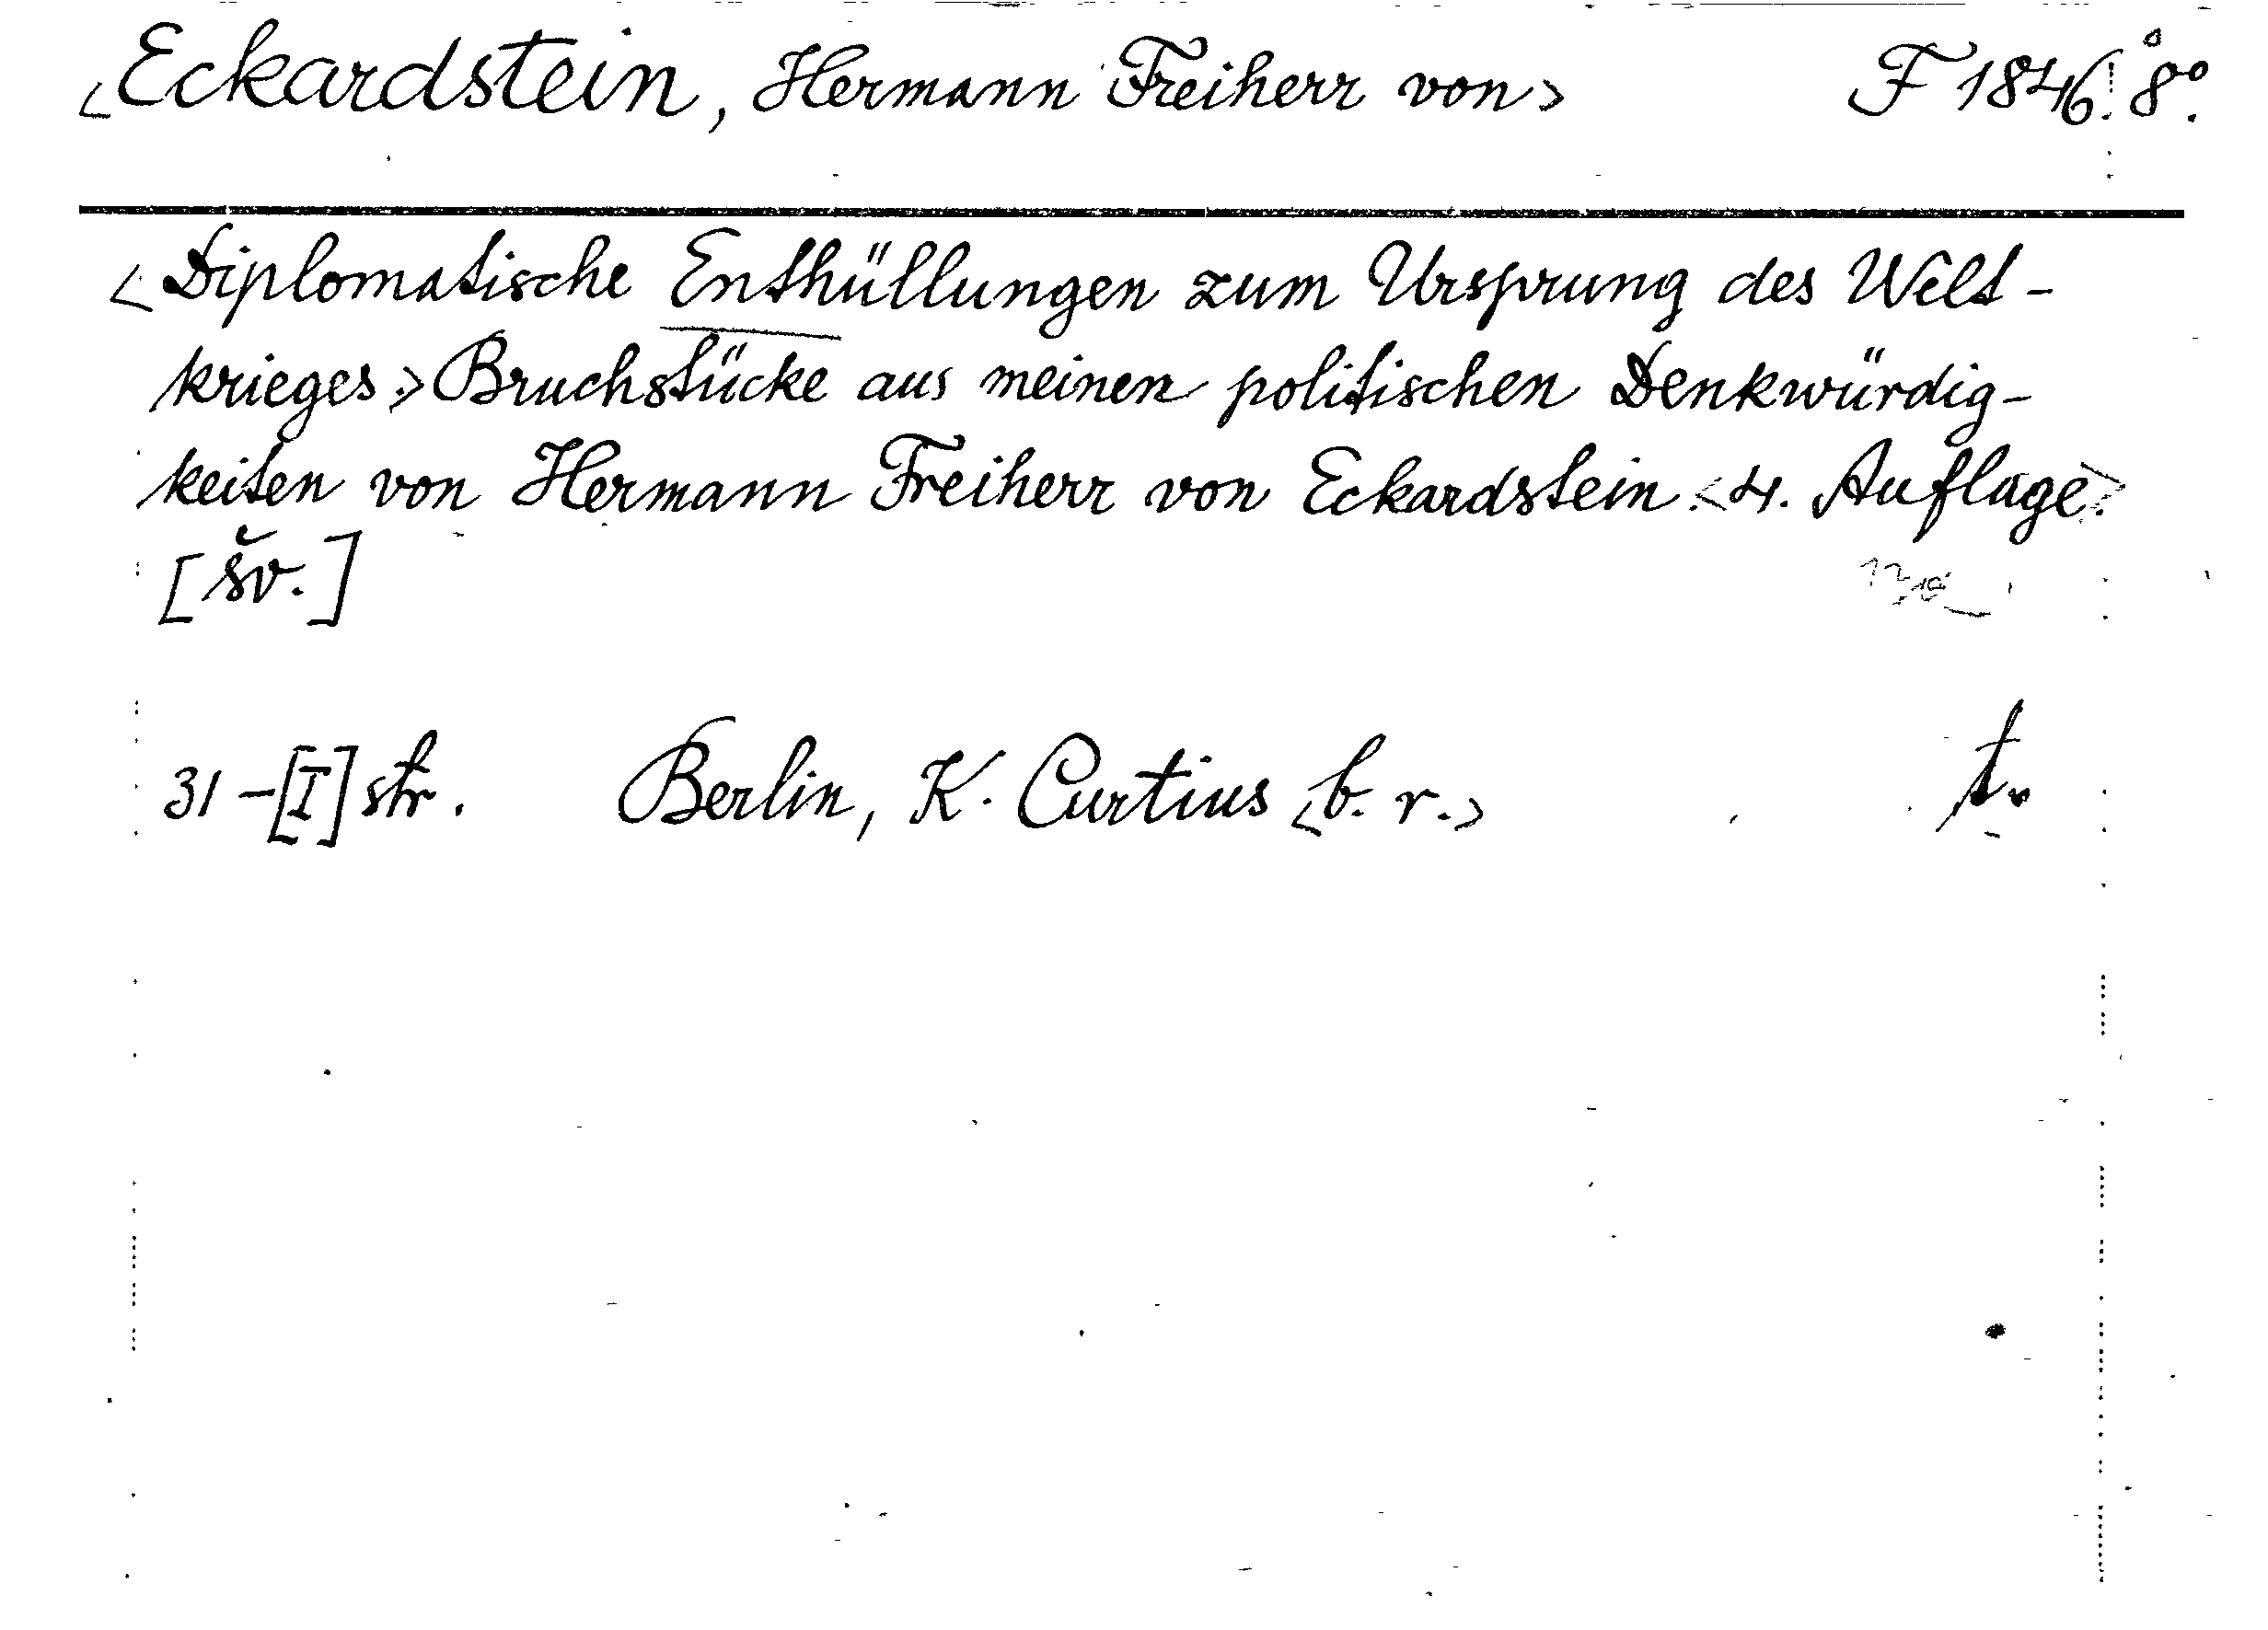 <Eckardstein, Hermann Freiherr von> F 1846. 8°.
<Diplomatische Enthüllungen zum Ursprung des Welt-
krieges.> Bruchstücke aus meinen politischen Denkwürdig-
keiten von Hermann Freiherr von Eckardstein. <4. Auflage.>
[šv.]
31-[I] str. Berlin, K. Curtius <b. r.>